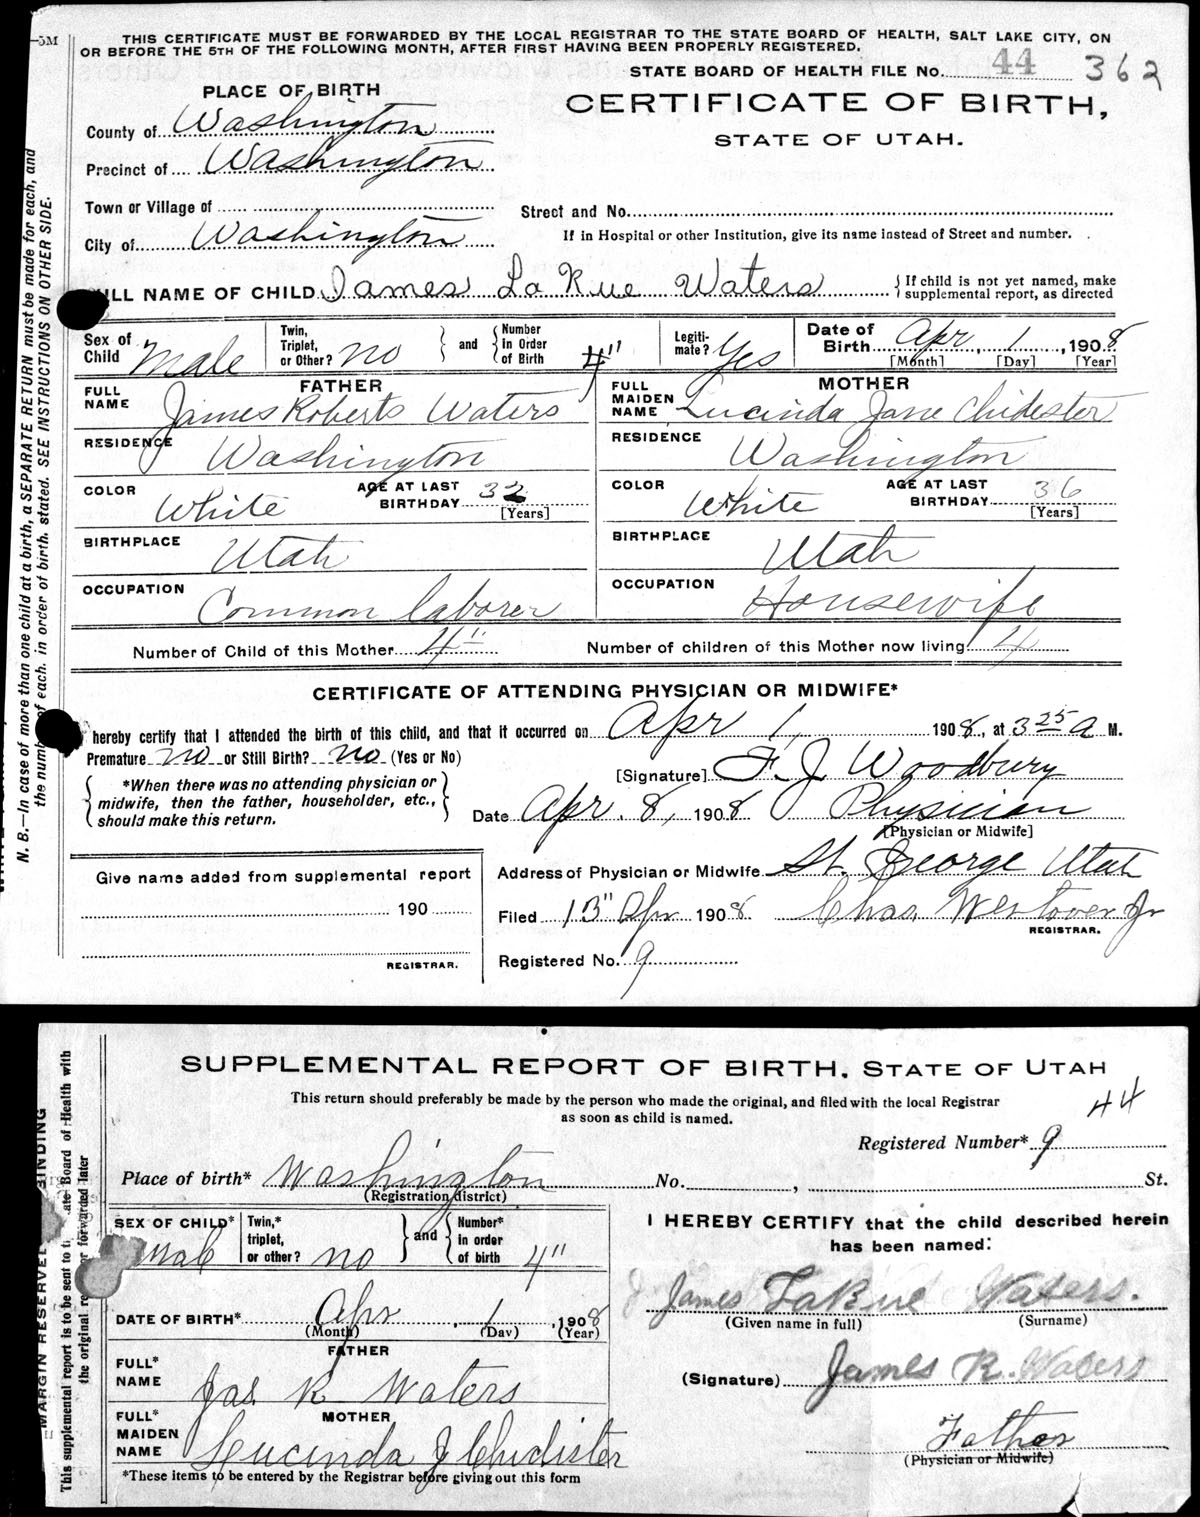 5M
THIS CERTIFICATE MUST BE FORWARDED BY THE LOCAL REGISTRAR TO THE STATE BOARD OF HEALTH, SALT LAKE CITY, ON
OR BEFORE THE 5TH OF THE FOLLOWING MONTH, AFTER FIRST HAVING BEEN PROPERLY REGISTERED.
STATE BOARD OF HEALTH FILE No. 44 362
PLACE OF BIRTH
CERTIFICATE OF BIRTH,
STATE OF UTAH.
County of Washington
Precinct of Washington
Town or Village of
Street and No.
City of Washington
If in Hospital or other Institution, give its name instead of Street and number.
FULL NAME OF CHILD James La Rue Waters { If child is not yet named, make supplemental report, as directed
Sex of Child Male Twin, Triplet, or Other? no } and { Number In Order of Birth 4" Legiti-mate? Yes Date of Birth Apr 1, 1908
[Month] [Day] [Year]
FATHER MOTHER
FULL NAME James Roberts Waters FULL MAIDEN NAME Lucinda Jane Chidester
RESIDENCE Washington RESIDENCE Washington
COLOR White AGE AT LAST BIRTHDAY 32 [Years] COLOR White AGE AT LAST BIRTHDAY 36 [Years]
BIRTHPLACE Utah BIRTHPLACE Utah
OCCUPATION Common laborer OCCUPATION Housewife
Number of Child of this Mother 4" Number of children of this Mother now living 4
CERTIFICATE OF ATTENDING PHYSICIAN OR MIDWIFE*
hereby certify that I attended the birth of this child, and that it occurred on Apr 1, 1908, at 3 25 a M.
Premature no or Still Birth? no (Yes or No)
[Signature] F. J Woodbury
*When there was no attending physician or
midwife, then the father, householder, etc.,
should make this return.
Date Apr. 8, 1908 Physician
[Physician or Midwife]
Address of Physician or Midwife St. George Utah
Give name added from supplemental report
190
Filed 13" Apr 1908 Chas Westover Jr
REGISTRAR.
REGISTRAR.
Registered No. 9
N. B.—In case of more than one child at a birth, a SEPARATE RETURN must be made for each, and
the number of each, in order of birth, stated. SEE INSTRUCTIONS ON OTHER SIDE.
SUPPLEMENTAL REPORT OF BIRTH. STATE OF UTAH
This return should preferably be made by the person who made the original, and filed with the local Registrar
as soon as child is named.
44
Registered Number* 9
Place of birth* Washington No. , St.
(Registration district)
SEX OF CHILD* Male Twin,* triplet, or other? no } and { Number* in order of birth 4"
I HEREBY CERTIFY that the child described herein
has been named:
James LaRue Waters.
(Given name in full) (Surname)
DATE OF BIRTH* Apr 1, 1908
(Month) (Day) (Year)
FATHER
FULL* NAME Jas. R Waters
(Signature) James R. Waters
MOTHER
FULL* MAIDEN NAME Lucinda J Chidister
Father
(Physician or Midwife)
*These items to be entered by the Registrar before giving out this form
MARGIN RESERVED BINDING
This supplemental report is to be sent to ate Board of Health with
the original re or forwarded later